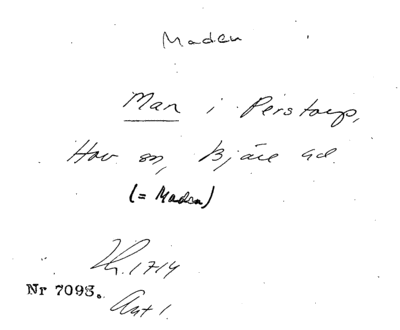 Maden
Man i Perstorp,
Hov sn, Bjäre hd.
(= Maden)
Th. 1714
Nr 7093.
Ant 1.